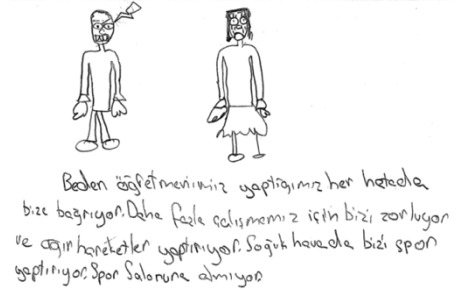 Beden öğretmenimiz yaptığımız her hatada
bize bağırıyor. Daha fazla çalışmamız için bizi zorluyor
ve ağır hareketler yaptırıyor. Soğuk havada bizi spor
yaptırıyor. Spor Salonuna almıyor.